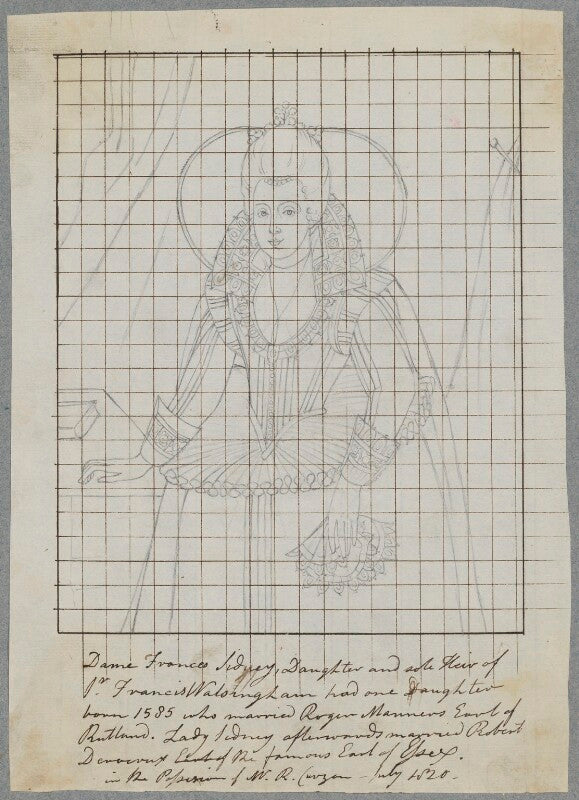 Dame Frances Sidney, Daughter and sole Heir of
Sr. Francis Walsingham had one Daughter
born 1585 who married Roger Manners Earl of
Rutland. Lady Sidney afterwards married Robert
Devereux Earl of the famous Earl of Essex.
in the Possession of Mr. R. Curzon - July 1820.